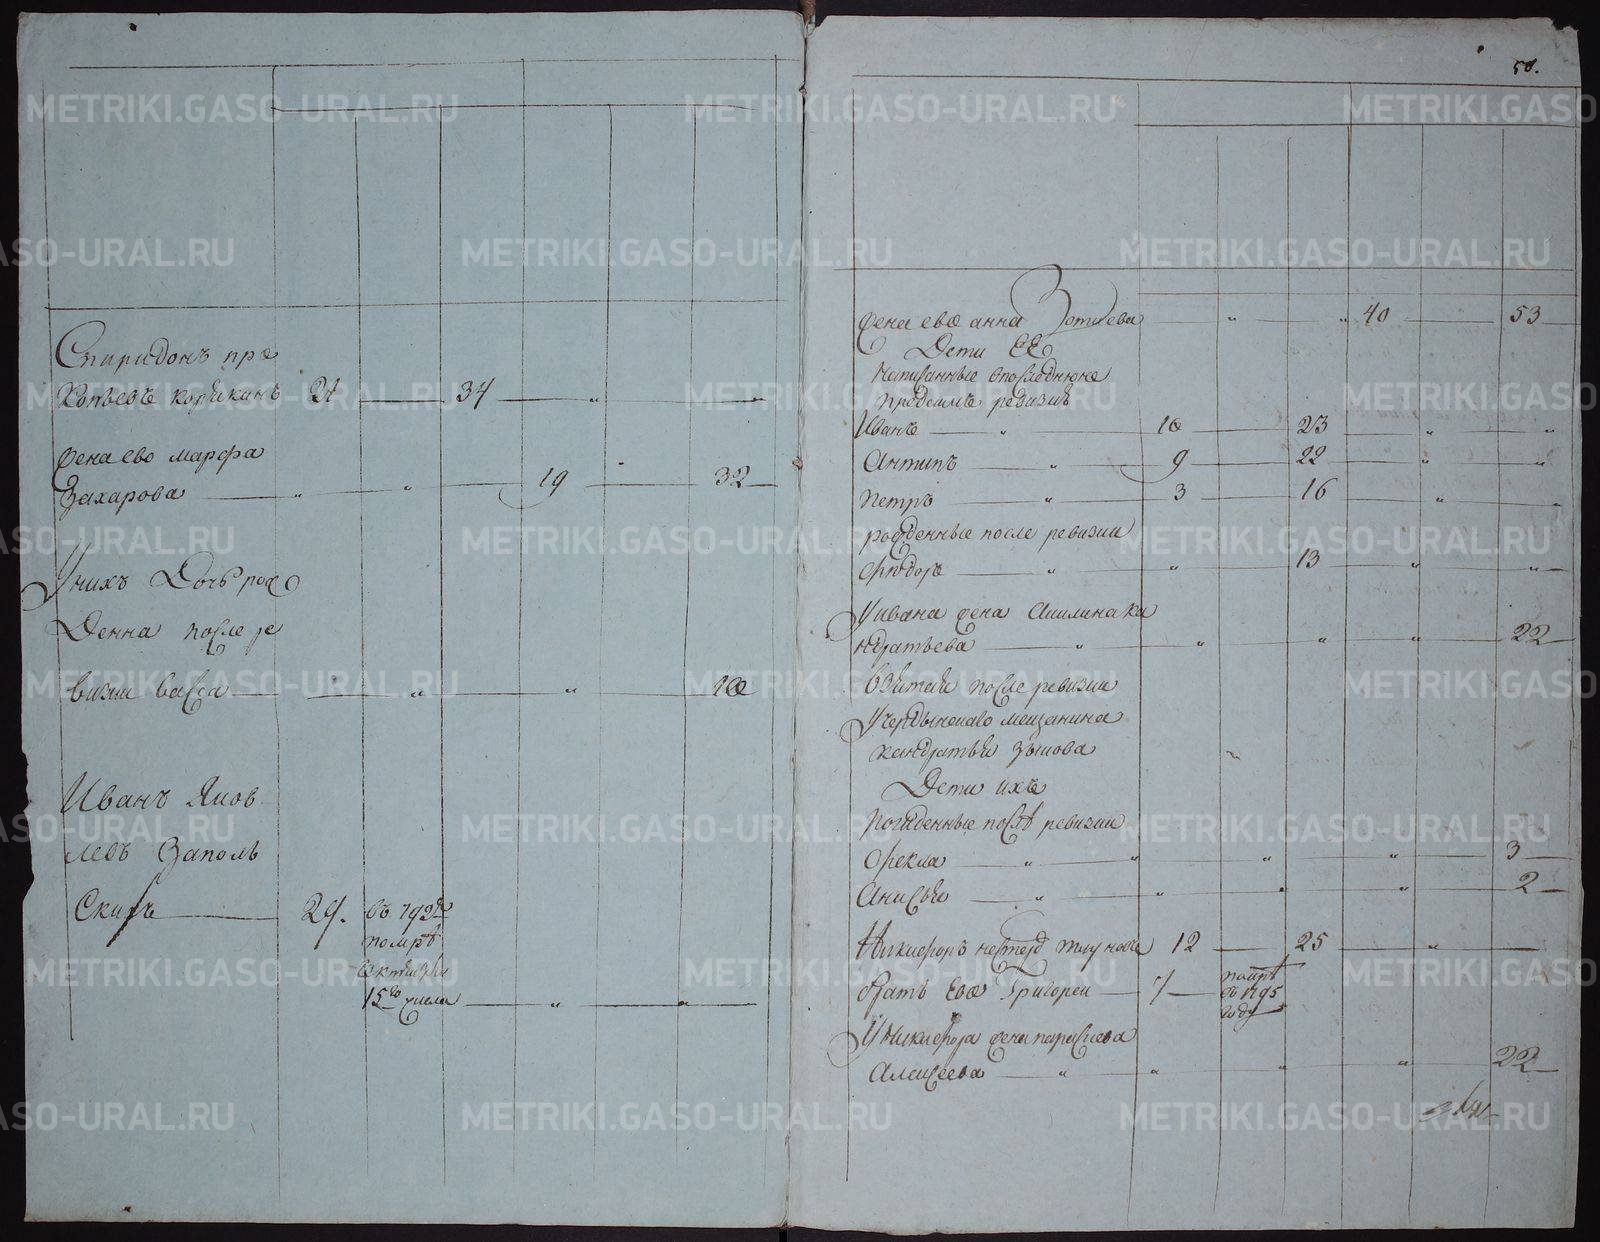 Спиридонъ про
копьевъ корякинъ 21 34 „ „
жена ево марфа
Захарова „ „ 19 32
У нихъ Дочь рож
Денна после ре
визии васса „ „ 10
Иванъ Яков
левъ Заполь
Скихъ 29.
въ 792м
помре
октября
15го числа „ „
50.
жена ево анна Зотиева „ „ 40 53
Дети ЕЕ
написанные впоследнюю
предсимъ ревизию
Иванъ „ 10 23 „ „
Антипъ „ 9 22 „ „
петръ „ 3 16 „ „
рожденные после ревизии
Федоръ „ „ 13 „ „
У ивана жена Акилина ка
ндратьева „ „ „ „ 22
взятая после ревизии
У чердынскаго мещанина
кандратья
Дети ихъ
рожденные после ревизии
Фекла „ „ „ „ 3
Анисья „ „ „ „ 2
Никифоръ 12 25 „
братъ Ево Григореи 7
помре
въ 1795
году
У Никифора жена парасковья
Алексеева „ „ „ „ 22
METRIKI.GASO-URAL.RU